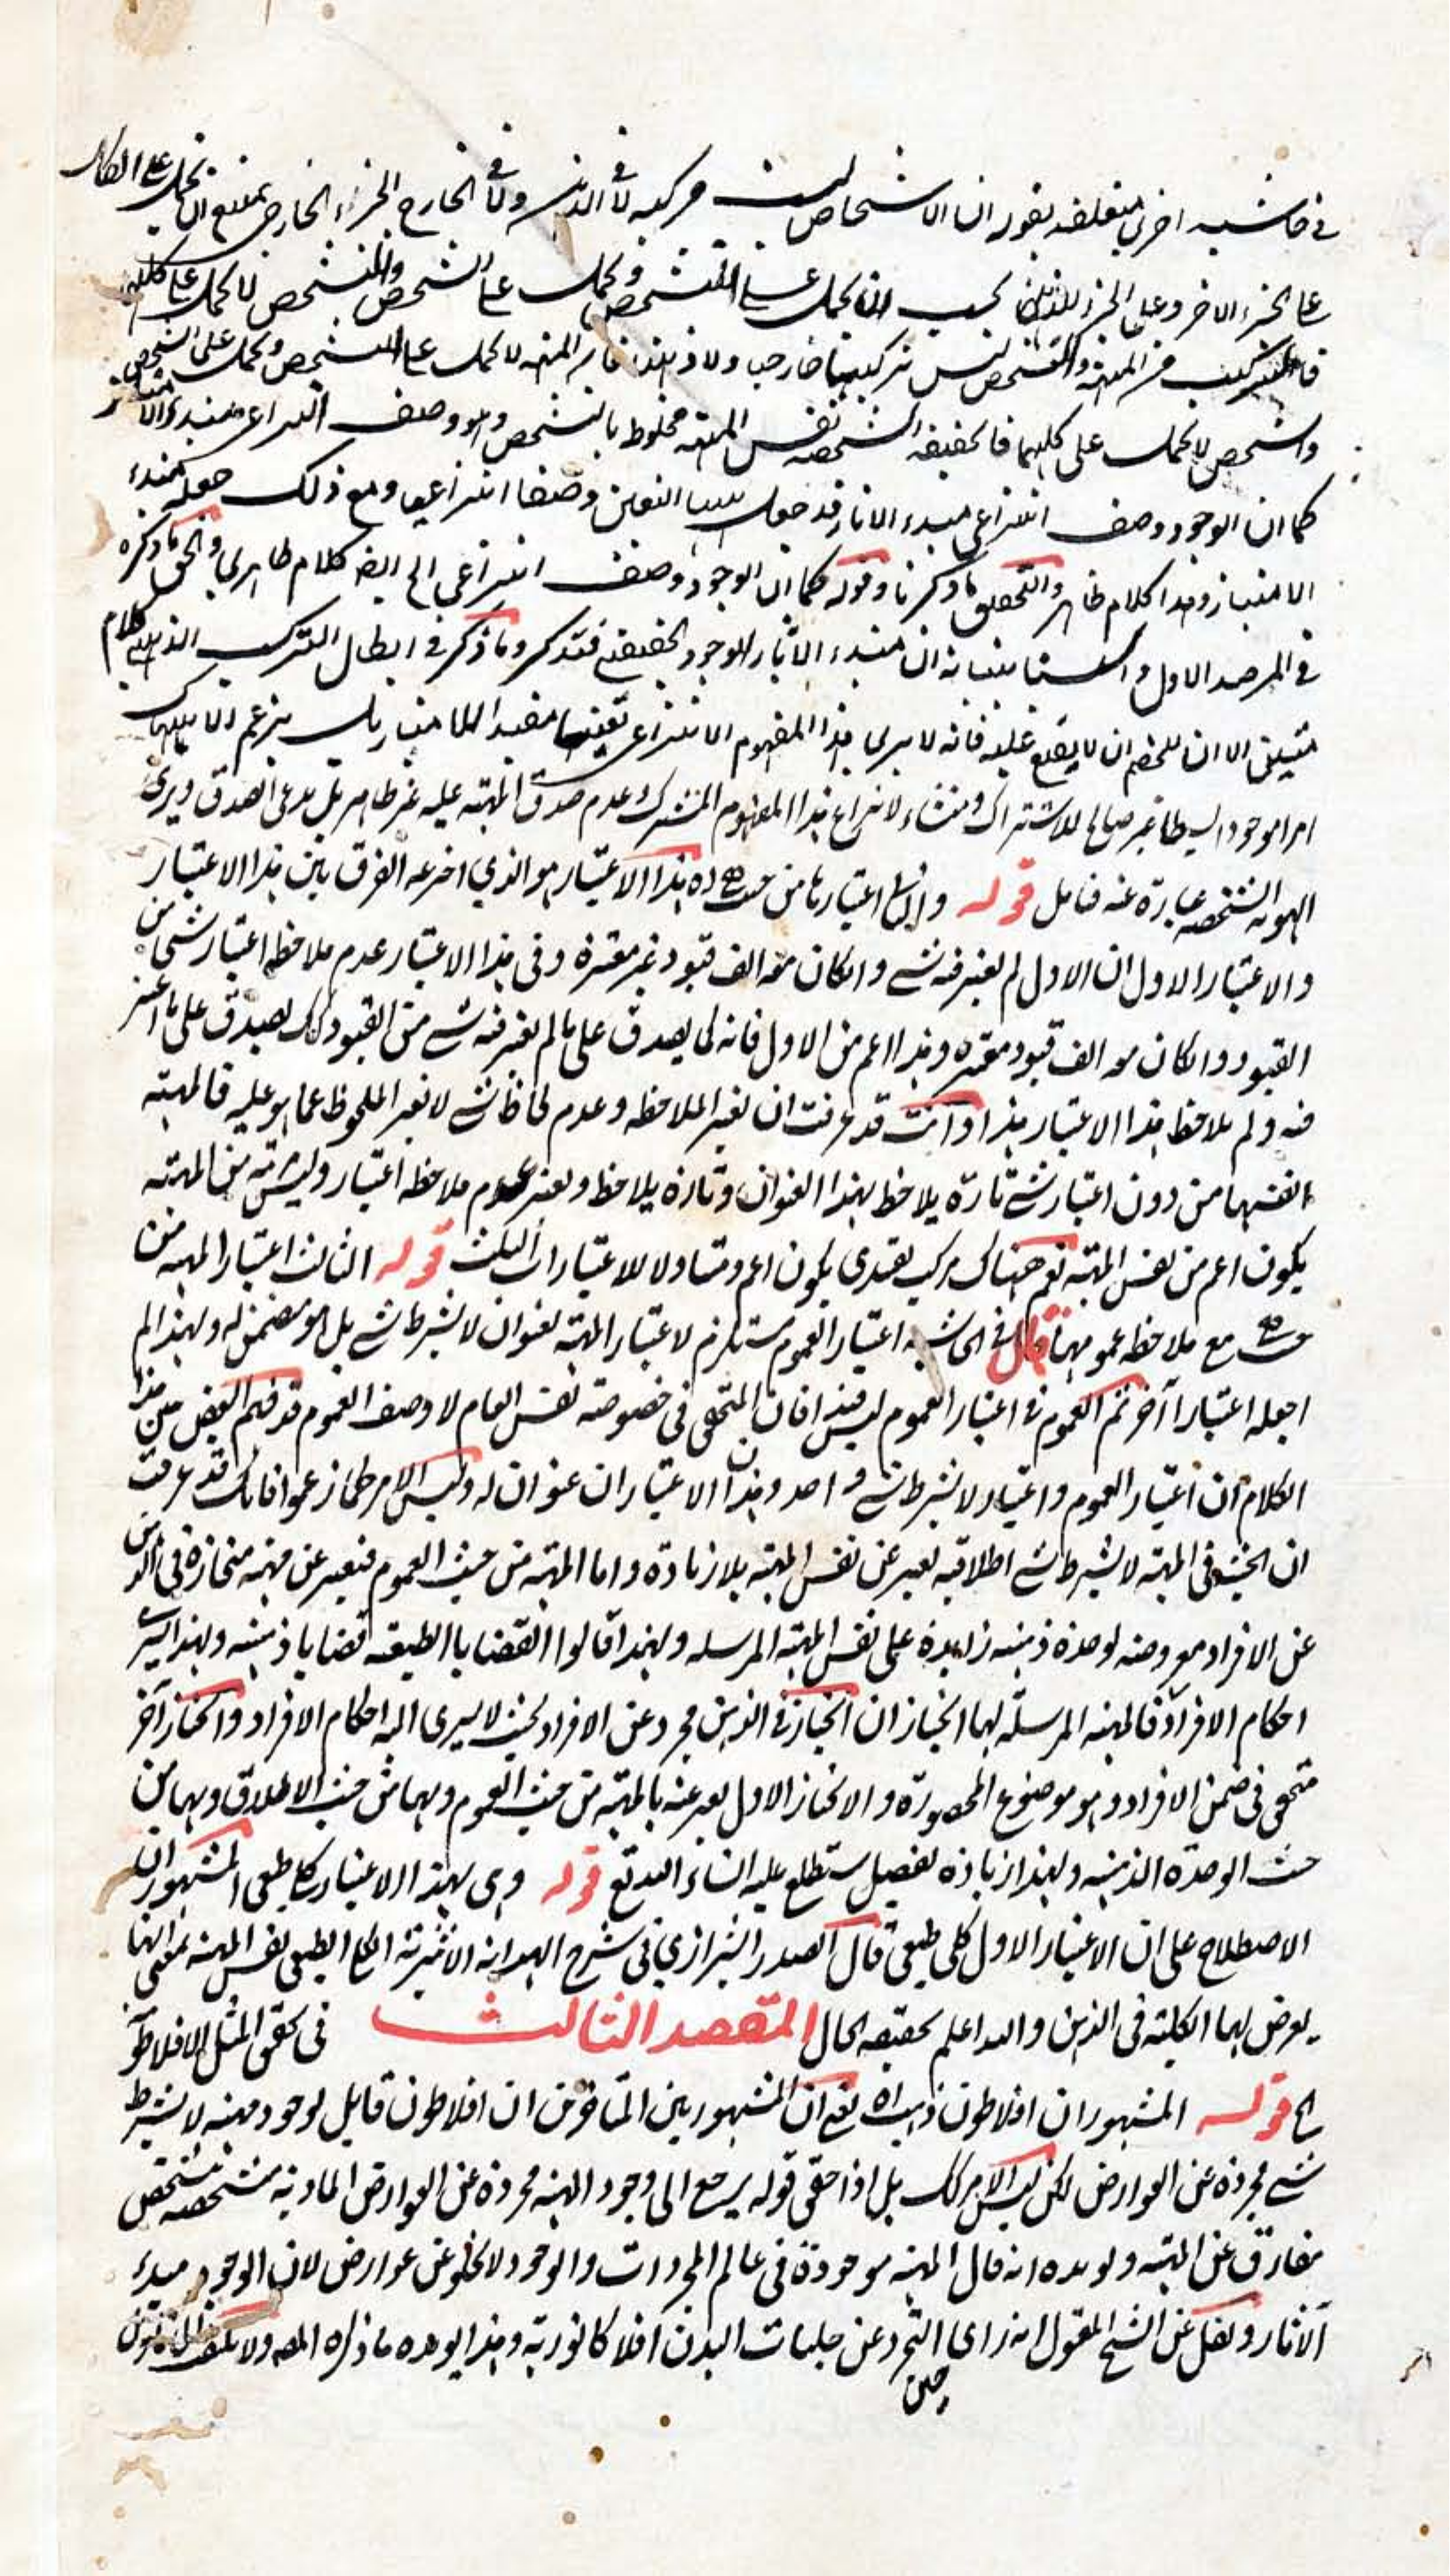 في حاشيه اخرى متعلقه بقوله ان الاشخاص ليست مركبه لا في الذهن ولا في الخارج الجزء الخارجي يمتنع ان يحمل على الكل
على الجزء الاخر وعلى الجزء الذهني يجب ان يحمل على المتشخص ويحمل على الشخص والمتشخص لا يحمل على كليهما
فالتركيب من المهيه والتشخص ليس تركيبا خارجيا ولا ذهنيا فان المهيه لا يحمل على التشخص ويحمل على الشخص
والتشخص لا يحمل على كليهما فالحقيقه الشخصيه نفس المهيه مخلوط بالتشخص وهو وصف انتزاعي مبدء الامتياز
كما ان الوجود وصف انتزاعي مبدء الاثار قد جعل التعين وصفا انتزاعيا ومع ذلك جعله مبدء
الامتياز وهذا كلام ظاهري والتحقيق ما ذكرنا وقوله كما ان الوجود وصف انتزاعي الخ ايضا كلام ظاهري والحق ما ذكره
في المرصد الاول و ان مبدء الاثار الوجود الحقيقي فتذكر وما ذكر في ابطال التركيب الذهني كلام
متين الا ان للخصم ان لا يقنع عليه فانه لا يرى هذا المفهوم الانتزاعي تعينا مفيدا للامتياز بل يزعم ان هناك
امرا موجودا بسيطا غير صالح للاشتراك ومنشاء لانتزاع هذا المفهوم المشترك وعدم صدق المهيه عليه غير ظاهر بل يدعى الصدق ويرى
الهويه الشخصيه عبارة عنه فتامل قوله وثانيها اعتبارها من حيث هي اه هذا الاعتبار هو الذي اخترعه الفرق بين هذا الاعتبار
والاعتبار الاول ان الاول لم يعتبر فيه شئ وان كان معه الف قيود غير معتبرة وفي هذا الاعتبار عدم ملاحظه اعتبار شئ من
القيود وان كان معه الف قيود معتبره وهذا اعم من الاول فانه كما يصدق على ما لم يعتبر فيه شئ من القيود كك يصدق على ما اعتبر
فيه ولم يلاحظ هذا الاعتبار هذا وانت قد عرفت ان تغير الملاحظه وعدم لحاظ شئ لا يغير الملحوظ عما هو عليه فالمهيه
نفسها من دون اعتبار شئ تارة يلاحظ بهذا العنوان وتارة يلاحظ ويعتبر عدم ملاحظه اعتبار وليس شئ من المهيه
يكون اعم من نفس المهيه نعم هناك مركب تقيدي يكون اعم ومتناولا للاعتبارات الثلث قوله الثالث اعتبار المهيه من
حيث هي مع ملاحظه عمومها قال في الحاشيه اعتبار العموم مستلزم لاعتبار المهيه بعنوان لا بشرط شئ بل هو متضمن له ولهذا لم
اجعله اعتبارا آخر ثم العموم في اعتبار العموم ليس قيدا فان المتحقق في خصوصيه نفس العام لا وصف العموم قد فهم البعض من هذا
الكلام ان اعتبار العموم واعتبار لا بشرط شئ واحد وهذان الاعتباران عنوان له وليس الامر كما زعموا فانك قد عرفت
ان الحيثية في المهيه لا بشرط شئ اطلاقيه يعبر عن نفس المهيه بلا زيادة واما المهيه من حيث العموم فيعبر عن مهيه منحازة في الذهن
عن الافراد معروضه لوحدة ذهنيه زايدة على نفس المهيه المرسله ولهذا قالوا القضايا الطبيعيه قضايا ذهنيه ولهذا لا يسري
احكام الافراد فالمهيه المرسلة لها انحيازان انحياز في الذهن مجرد عن الافراد بحيث لا يسرى اليه احكام الافراد وانحياز آخر
متحقق في ضمن الافراد وهو موضوع المحصورة والانحياز الاول يعبر عنه بالمهيه من حيث العموم وبها من حيث الاطلاق وبها من
حيث الوحدة الذهنيه ولهذا زيادة تفصيل ستطلع عليه انشاء الله تع قوله وهي بهذا الاعتبار كلي طبعي المشهور ان
الاصطلاح على ان الاعتبار الاول كلي طبعي قال الصدر الشيرازي في شرح الهدايه الاثيرية الكلي الطبيعي نفس المهيه بمعنى انها
يعرض لها الكليه في الذهن والله اعلم بحقيقه الحال المقصد الثالث في تحقق المثل الافلاطونيه
الخ قوله المشهور ان افلاطون ذهب اه يعني ان المشهور بين المتاخرين ان افلاطون قايل لوجود مهيه لا بشرط
شئ مجردة عن العوارض لكن ليس الامر كك بل اذا حقق قوله يرجع الى وجود المهيه مجردة عن العوارض الماديه متشخصه بتشخص
مفارق عن المهيه ويويده انه قال المهيه موجودة في عالم المجردات والوجود لا يخلو عن عوارض لان الوجود مبدء
الآثار ونقل عن الشيخ المقتول انه راى حين التجرد عن جلبات البدن افلاكا نورية وهذا يويده ما ذكره المصه ولا